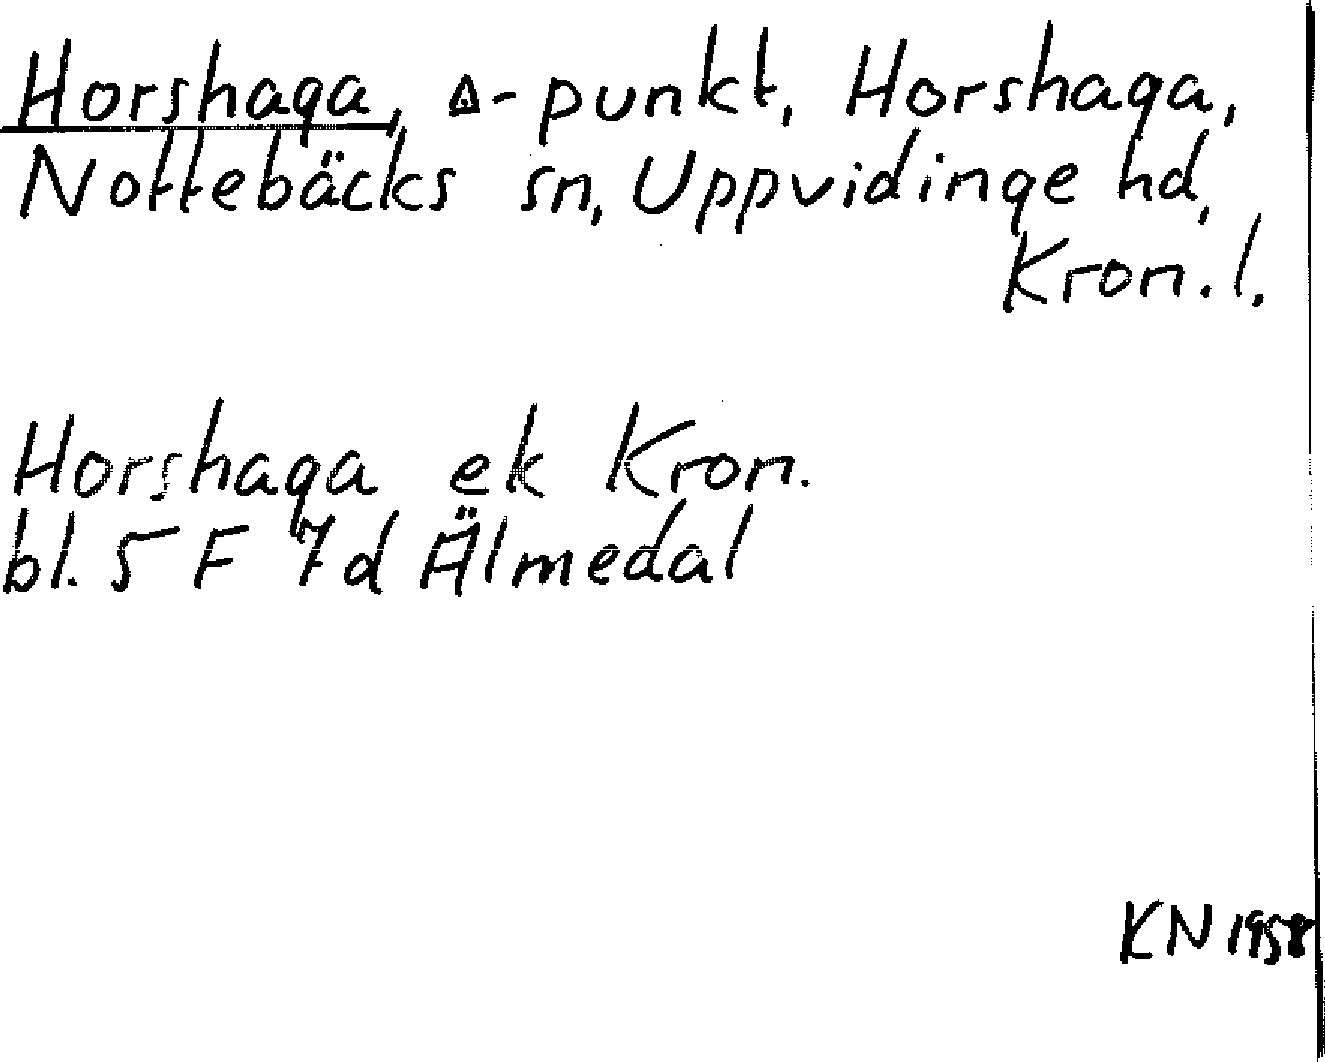 Horshaga, △-punkt, Horshaga,
Nottebäcks sn, Uppvidinge hd,
Kron. l.
Horshaga ek Kron.
bl. 5 F 7d Älmedal
KN 1958